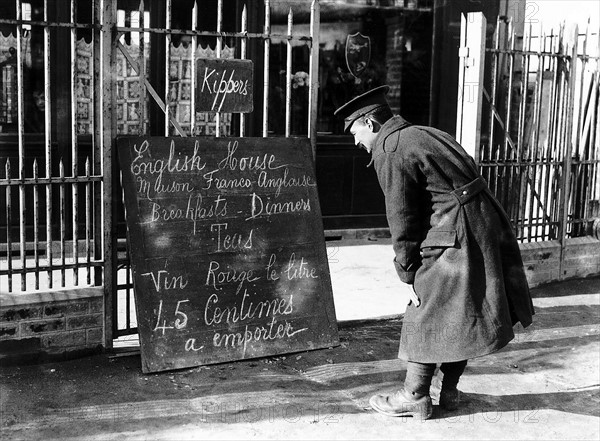 Kippers
English House
Maison Franco-Anglaise
Breakfasts - Dinners
Teas
Vin Rouge le litre
45 Centimes
a emporter